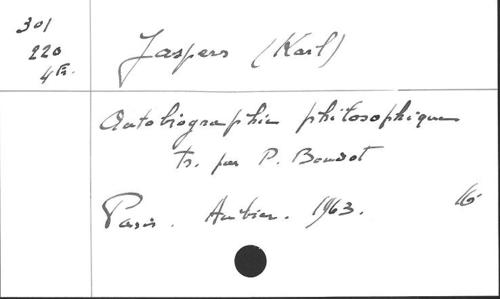 301
220
4 Fr.
Jaspers (Karl)
Autobiographie philosophique
tr. par P. Boudot
Paris. Aubier. 1963. 16.